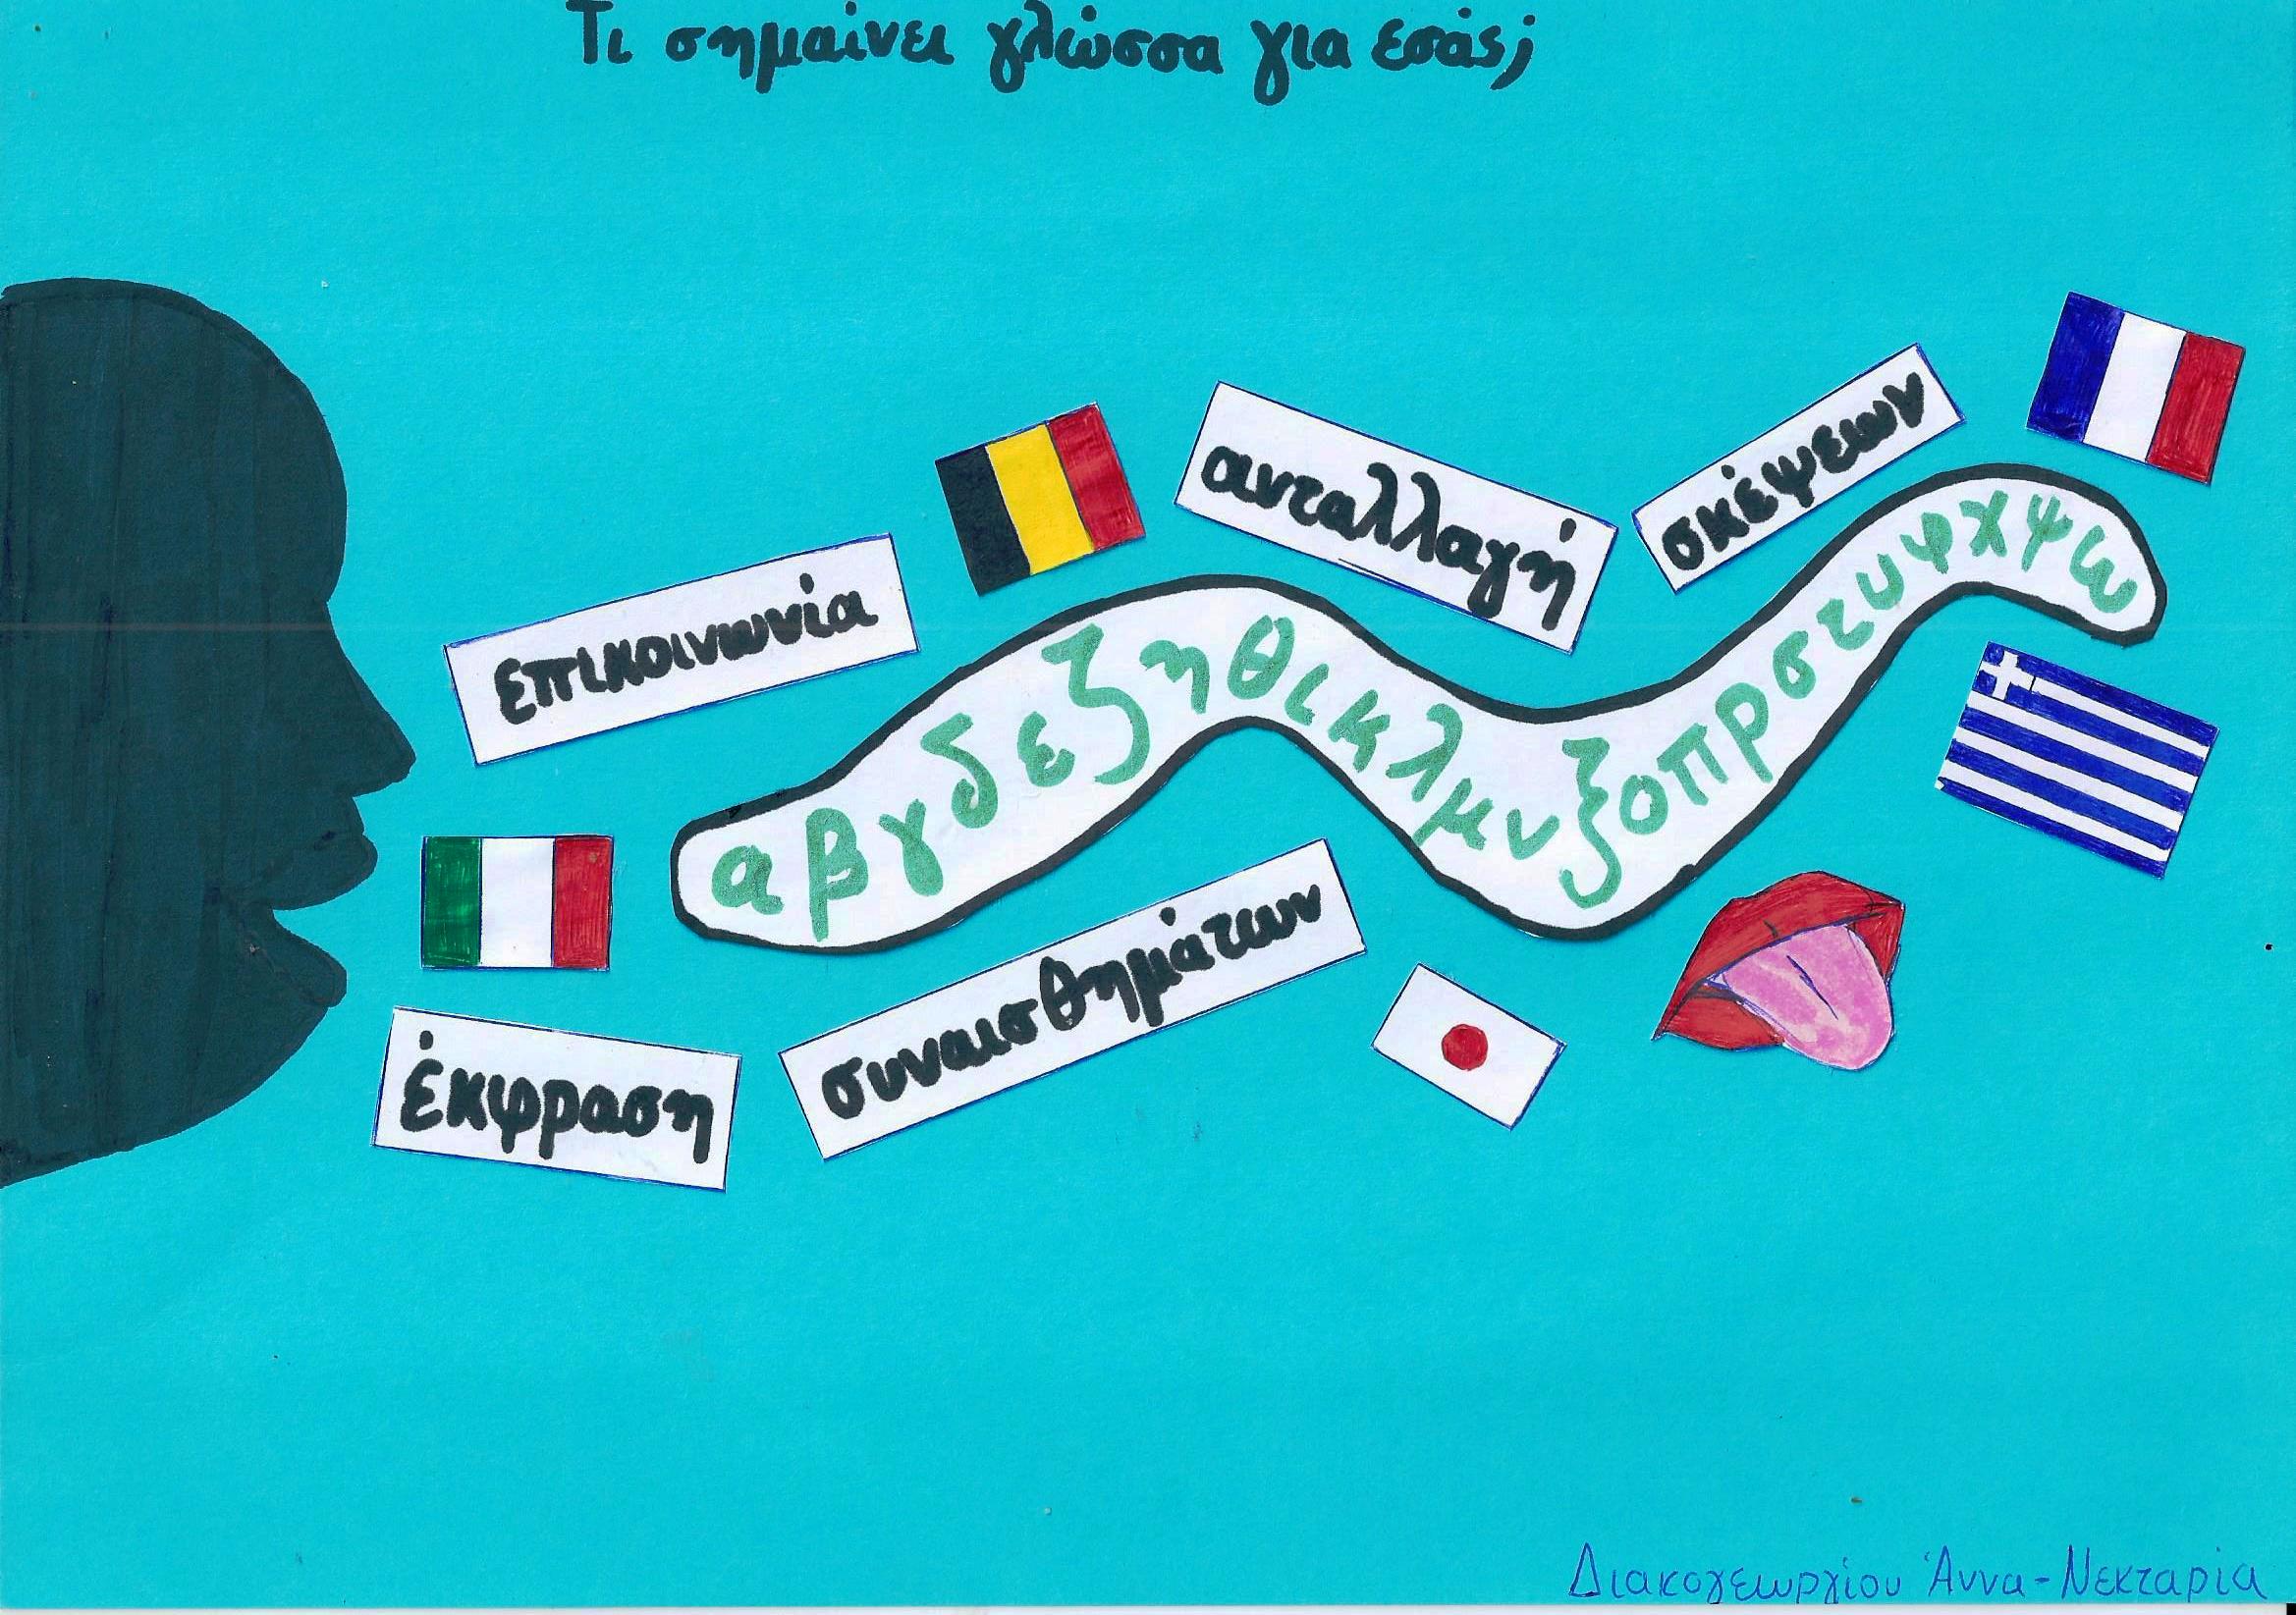 Τι σημαίνει γλώσσα για εσάς;
επικοινωνία
ανταλλαγή
σκέψεων
αβγδεζηθικλμνξοπρστυφχψω
έκφραση
συναισθημάτων
Διακογεωργίου Άννα-Νεκταρία